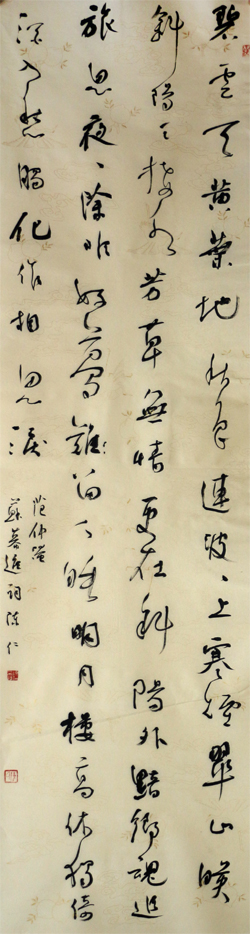 碧雲天黃葉地秋色連波〻上寒煙翠山映
斜陽天接水芳草無情更在斜陽外黯鄉魂追
旅思夜〻除非好夢難留人睡明月樓高休獨倚
酒入愁腸化作相思淚
范仲淹
蘇幕遮詞